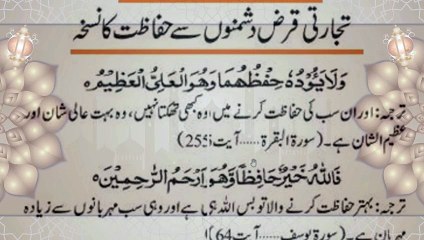 تجارتی قرض دشمنوں سے حفاظت کا نسخہ
وَلَا يَؤُدُهٗ حِفْظُهُمَا وَهُوَ الْعَلِيُّ الْعَظِيْمُ
ترجمہ: اور ان سب کی حفاظت کرنے میں اوہ کبھی تھکتا نہیں، وہ بہت عالی شان اور
عظیم الشان ہے۔ (سورۃ البقرۃ ...... آیت 255)
فَاللّٰهُ خَيْرٌ حَافِظًا وَّهُوَ اَرْحَمُ الرّٰحِمِيْنَ
ترجمہ: بہتر حفاظت کرنے والا تو بس اللہ ہی ہے اور وہی سب مہربانوں سے زیادہ
مہربان ہے۔ (سورۃ یوسف ...... آیت 64)